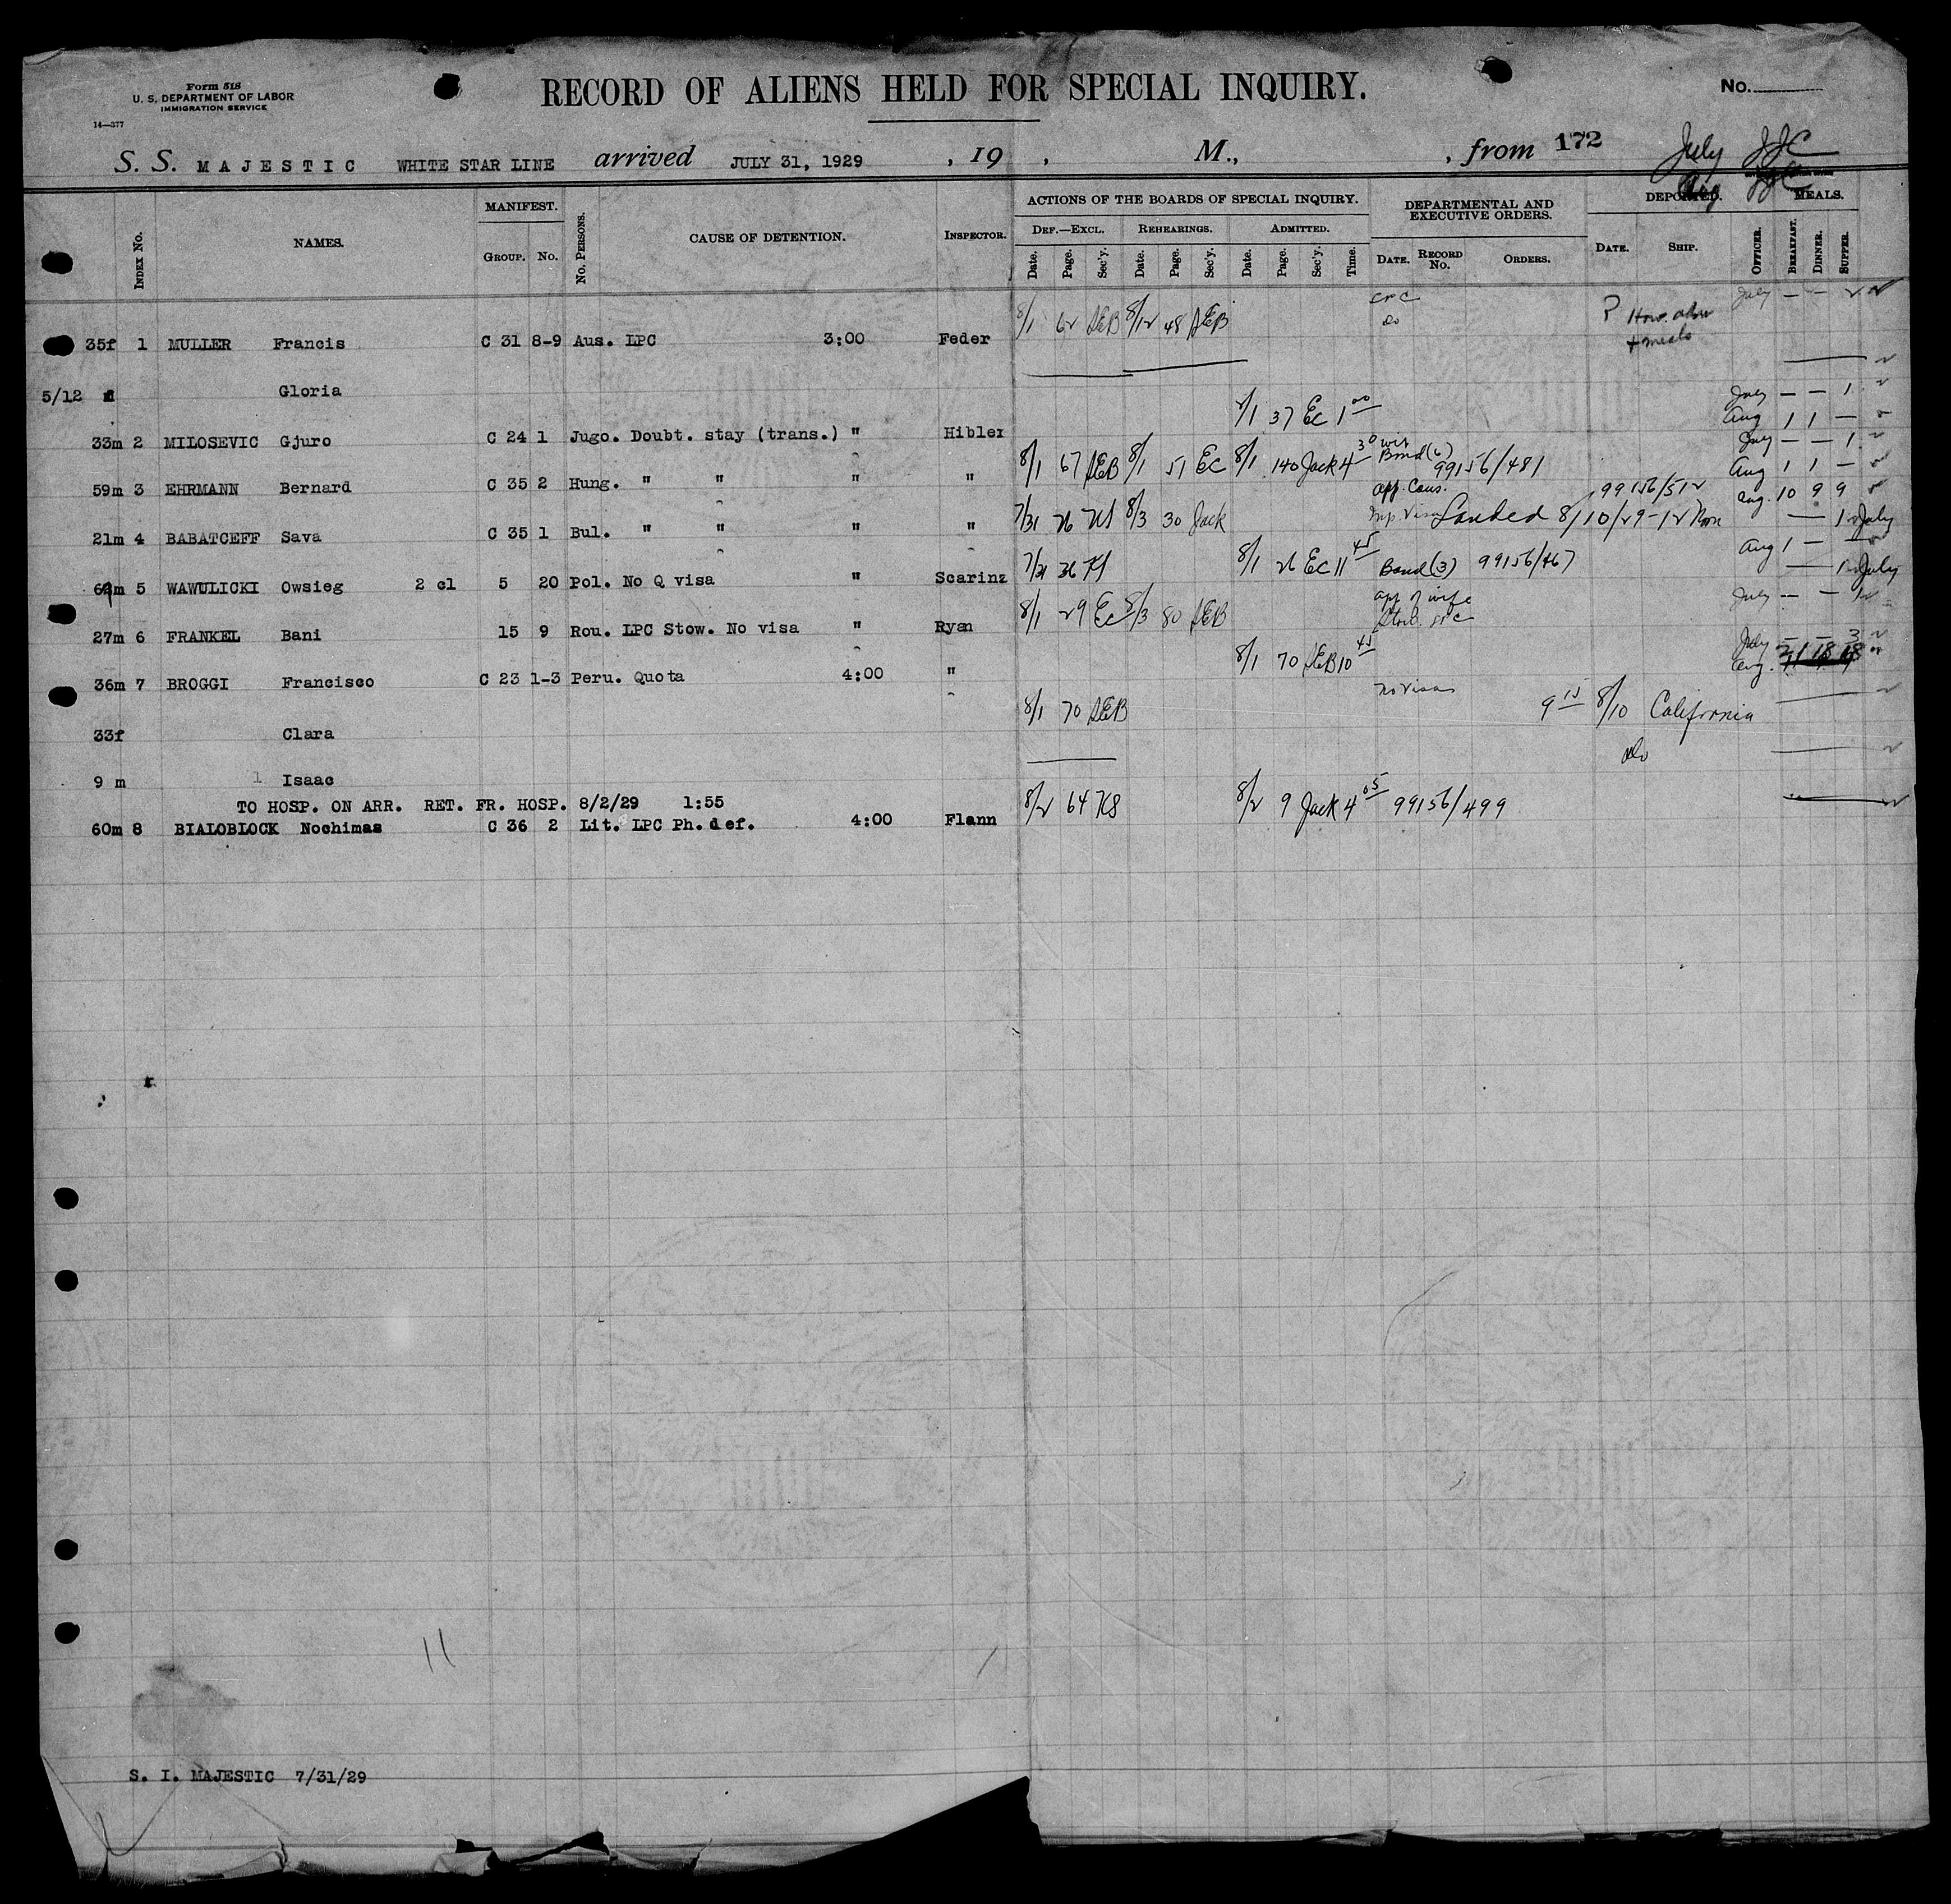 Form 518
U. S. DEPARTMENT OF LABOR
IMMIGRATION SERVICE
14—377
RECORD OF ALIENS HELD FOR SPECIAL INQUIRY.
No.
S. S. MAJESTIC WHITE STAR LINE arrived JULY 31, 1929 , 19 , M., , from 172
July JJC
Aug JJC
INDEX No. NAMES. MANIFEST. GROUP. No. No. PERSONS. CAUSE OF DETENTION. INSPECTOR. ACTIONS OF THE BOARDS OF SPECIAL INQUIRY. DEPARTMENTAL AND EXECUTIVE ORDERS. DEPORTED. MEALS.
DEF.—EXCL. REHEARINGS. ADMITTED.
Date. Page. Sec'y. Date. Page. Sec'y. Date. Page. Sec'y. Time. DATE. RECORD No. ORDERS. DATE. SHIP. OFFICER. BREAKFAST. DINNER. SUPPER.
35f 1 MULLER Francis C 31 8-9 Aus. LPC 3:00 Feder 8/1 62 AEB 8/12 48 AEB Do July — — 2
5/12 f Gloria
33m 2 MILOSEVIC Gjuro C 24 1 Jugo. Doubt. stay (trans.) " Hibler 8/1 37 EC 1 00 July — — 1
Aug 1 1 —
59m 3 EHRMANN Bernard C 35 2 Hung. " " " " 8/1 67 AEB 8/1 51 EC 8/1 140 Jack 4 30 Bond (6) 99156/481 July — — 1
Aug 1 1 —
21m 4 BABATCEFF Sava C 35 1 Bul. " " " " 7/31 76 8/3 30 Jack App. Cons. Landed 8/10/29-12 Noon 99156/512 Aug. 10 9 9
— 1 July
5 WAWULICKI Owsieg 2 cl 5 20 Pol. No Q visa " Scarinz 7/31 36 8/1 26 EC 11 45 Bond (3) 99156/467 Aug 1 —
— 1 July
27m 6 FRANKEL Bani 15 9 Rou. LPC Stow. No visa " Ryan 8/1 29 EC 8/3 80 AEB app of wife July — — 1
36m 7 BROGGI Francisco C 23 1-3 Peru. Quota 4:00 " 8/1 70 AEB 10 45 July — — 3
Aug.
33f Clara 8/1 70 AEB no visas 9 15 8/10 California
9 m 1 Isaac Do
TO HOSP. ON ARR. RET. FR. HOSP. 8/2/29 1:55
60m 8 BIALOBLOCK Nochimas C 36 2 Lit. LPC Ph. def. 4:00 Flann 8/2 64 KS 8/2 9 Jack 4 05 99156/499
11
S. I. MAJESTIC 7/31/29